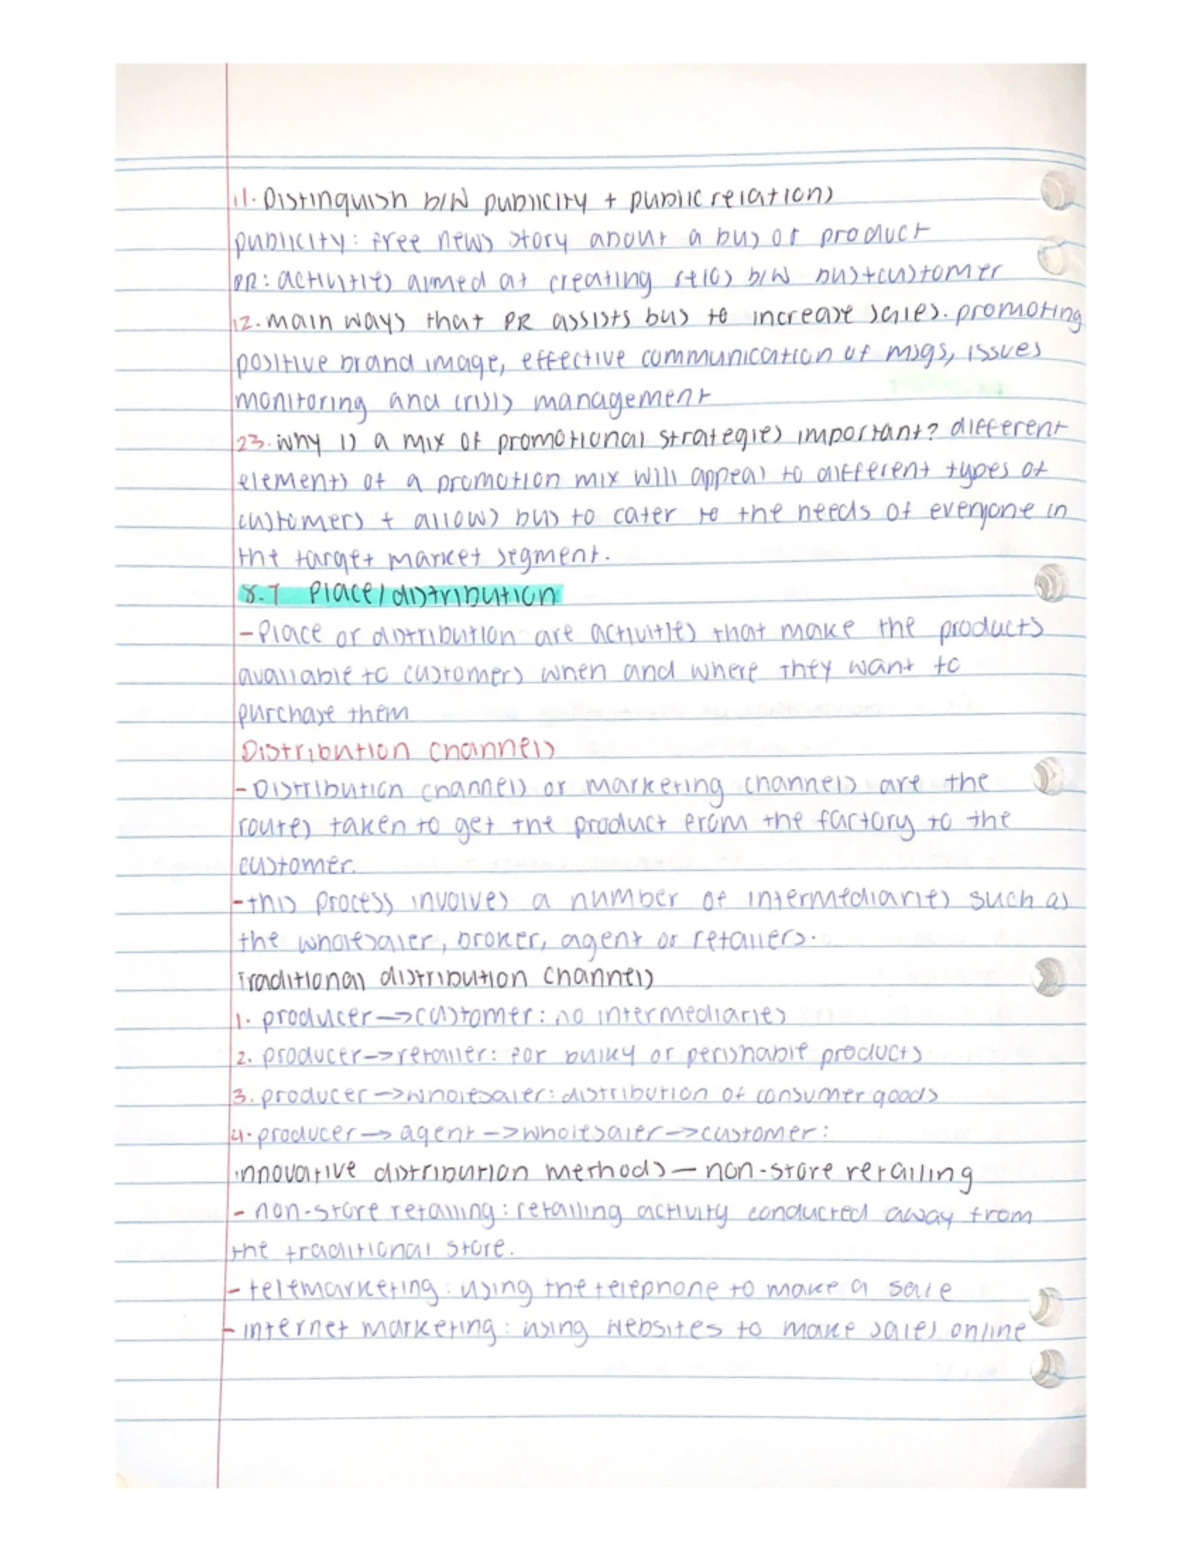 11. Distinguish b/w publicity + public relations
publicity: free news story about a bus or product
PR: activities aimed at creating r+los b/w bus+customer
12. main ways that PR assists bus to increase sales. promoting
positive brand image, effective communication of msgs, issues
monitoring and crisis management
23. why is a mix of promotional strategies important? different
elements of a promotion mix will appeal to different types of
customers + allows bus to cater to the needs of everyone in
the target market segment.
8.7 Place/distribution
- Place or distribution are activities that make the products
available to customers when and where they want to
purchase them
Distribution channels
- Distribution channels or marketing channels are the
routes taken to get the product from the factory to the
customer.
- this process involves a number of intermediaries such as
the wholesaler, broker, agent or retailers.
Traditional distribution channels
1. producer → customer: no intermediaries
2. producer → retailer: for bulky or perishable products
3. producer → wholesaler: distribution of consumer goods
4. producer → agent → wholesaler → customer:
innovative distribution methods — non-store retailing
- non-store retailing: retailing activity conducted away from
the traditional store.
- telemarketing: using the telephone to make a sale
- internet marketing: using websites to make sales online